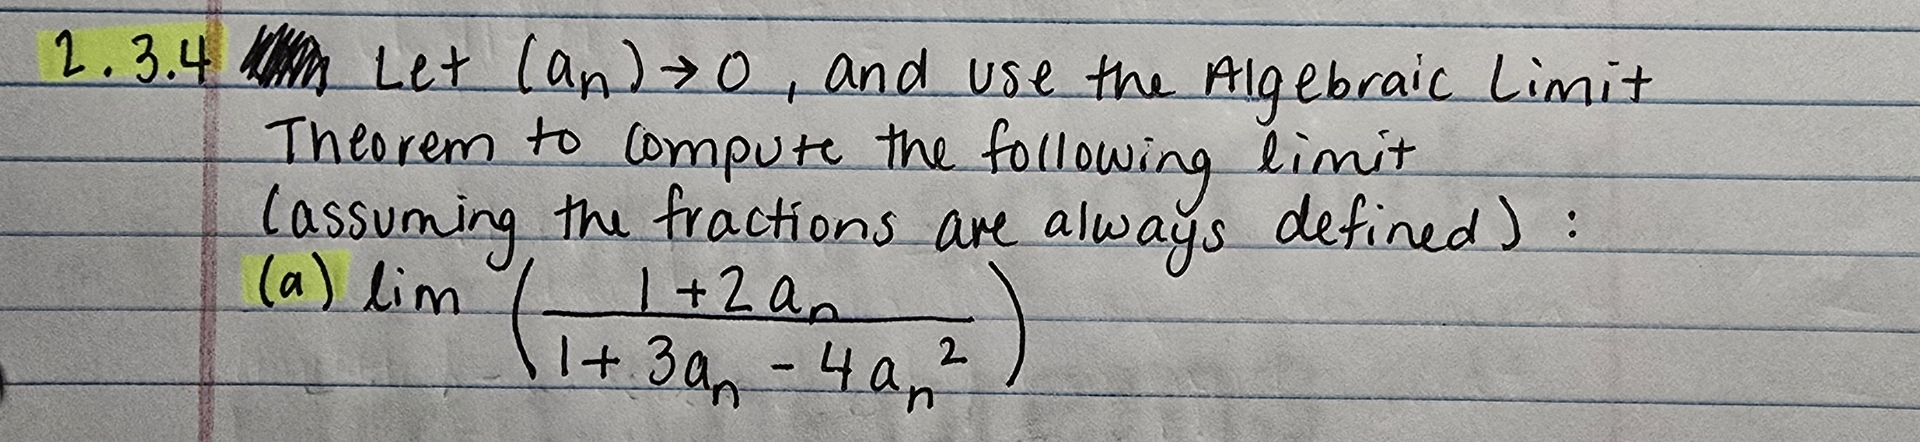 2.3.4 Let (aₙ) → 0, and use the Algebraic Limit
Theorem to compute the following limit
(assuming the fractions are always defined) :
(a) lim ( (1 + 2aₙ) / (1 + 3aₙ - 4aₙ²) )